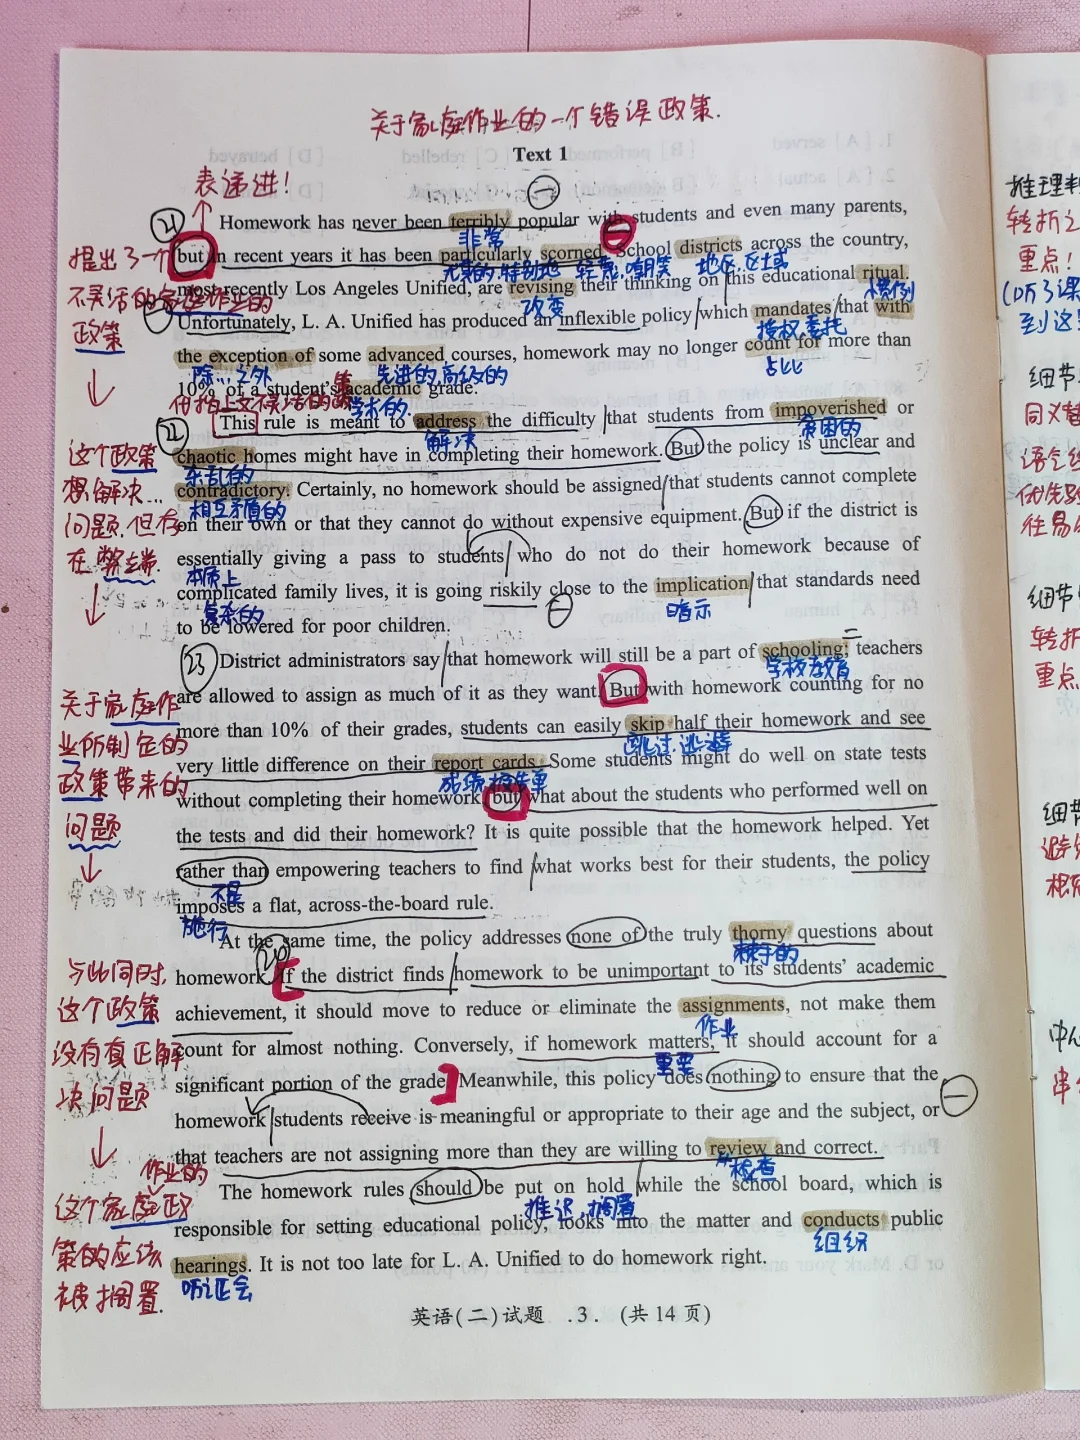 关于家庭作业的一个错误政策.
Text 1
表递进!
21
Homework has never been terribly popular with students and even many parents,
非常
提出了一个
but in recent years it has been particularly scorned. School districts across the country,
尤其的,特别地 轻蔑,嘲笑 地区,区域
不灵活的家庭作业的
most recently Los Angeles Unified, are revising their thinking on this educational ritual.
改变 惯例
政策
Unfortunately, L. A. Unified has produced an inflexible policy which mandates that with
授权,委托
the exception of some advanced courses, homework may no longer count for more than
除...之外 先进的,高级的 占比
10% of a student's academic grade.
代指上文不灵活的政策 学术的.
22
This rule is meant to address the difficulty that students from impoverished or
解决 贫困的
这个政策
chaotic homes might have in completing their homework. But the policy is unclear and
杂乱的
想解决...
contradictory. Certainly, no homework should be assigned that students cannot complete
相互矛盾的
问题.但存
on their own or that they cannot do without expensive equipment. But if the district is
在弊端.
essentially giving a pass to students who do not do their homework because of
本质上
complicated family lives, it is going riskily close to the implication that standards need
复杂的 暗示
to be lowered for poor children.
23
District administrators say that homework will still be a part of schooling; teachers
学校教育
关于家庭作
are allowed to assign as much of it as they want. But with homework counting for no
more than 10% of their grades, students can easily skip half their homework and see
跳过.逃避
业所制定的
very little difference on their report cards. Some students might do well on state tests
成绩报告单
政策带来的
without completing their homework, but what about the students who performed well on
问题
the tests and did their homework? It is quite possible that the homework helped. Yet
rather than empowering teachers to find what works best for their students, the policy
不是
imposes a flat, across-the-board rule.
施行
At the same time, the policy addresses none of the truly thorny questions about
棘手的
与此同时,
homework. If the district finds homework to be unimportant to its students' academic
这个政策
achievement, it should move to reduce or eliminate the assignments, not make them
作业
没有真正解
count for almost nothing. Conversely, if homework matters, it should account for a
重要
决问题
significant portion of the grade. Meanwhile, this policy does nothing to ensure that the
homework students receive is meaningful or appropriate to their age and the subject, or
that teachers are not assigning more than they are willing to review and correct.
检查
作业的
The homework rules should be put on hold while the school board, which is
推迟,搁置
这个家庭政
responsible for setting educational policy, looks into the matter and conducts public
组织
策的应该
hearings. It is not too late for L. A. Unified to do homework right.
听证会
被搁置.
英语(二)试题 .3. (共14页)
转折之
重点!
(听了课
到这
细节
同义替
细节
转折
重点
细节